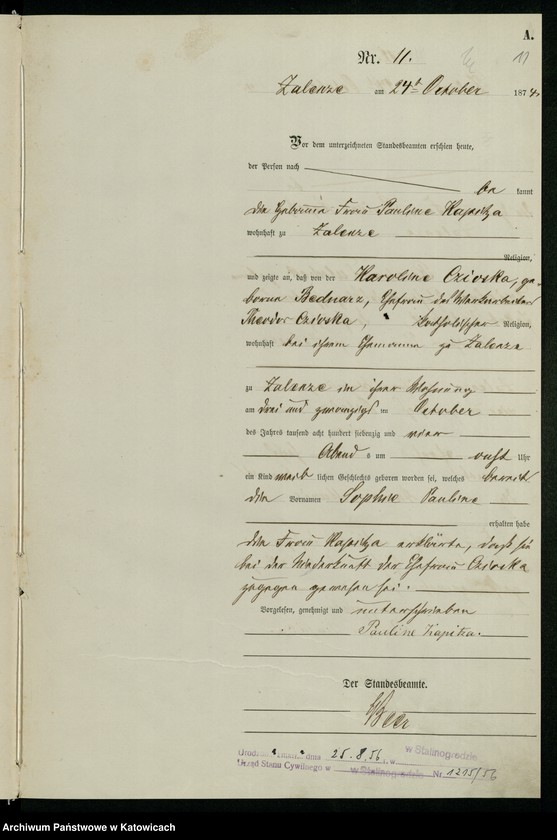 A.
Nr. 11.
11
Zalenze am 24t October 1874.
Vor dem unterzeichneten Standesbeamten erschien heute,
der Person nach
be kannt
die Hebamme Frau Pauline Kapitza
wohnhaft zu Zalenze
Religion,
und zeigte an, daß von der Karoline Czioska, ge-
borne Bednarz, Ehefrau des
Theodor Czioska, katholischer Religion,
wohnhaft bei ihrem Ehemanne zu Zalenze
zu Zalenze in ihrer Wohnung
am drei und zwanzigst en October
des Jahres tausend acht hundert siebenzig und vier
Abend s um acht Uhr
ein Kind weib lichen Geschlechts geboren worden sei, welches bereits
die Vornamen Sophie Pauline
erhalten habe
Die Frau Kapitza erklärte, daß sie
bei der Niederkunft der Ehefrau Czioska
zugegen gewesen sei.
Vorgelesen, genehmigt und unterschrieben
Pauline Kapitza.
Der Standesbeamte.
dnia 25.8.56 w Stalinogrodzie
Urząd Stanu Cywilnego w w Stalinogrodzie Nr 1215/56
Archiwum Państwowe w Katowicach